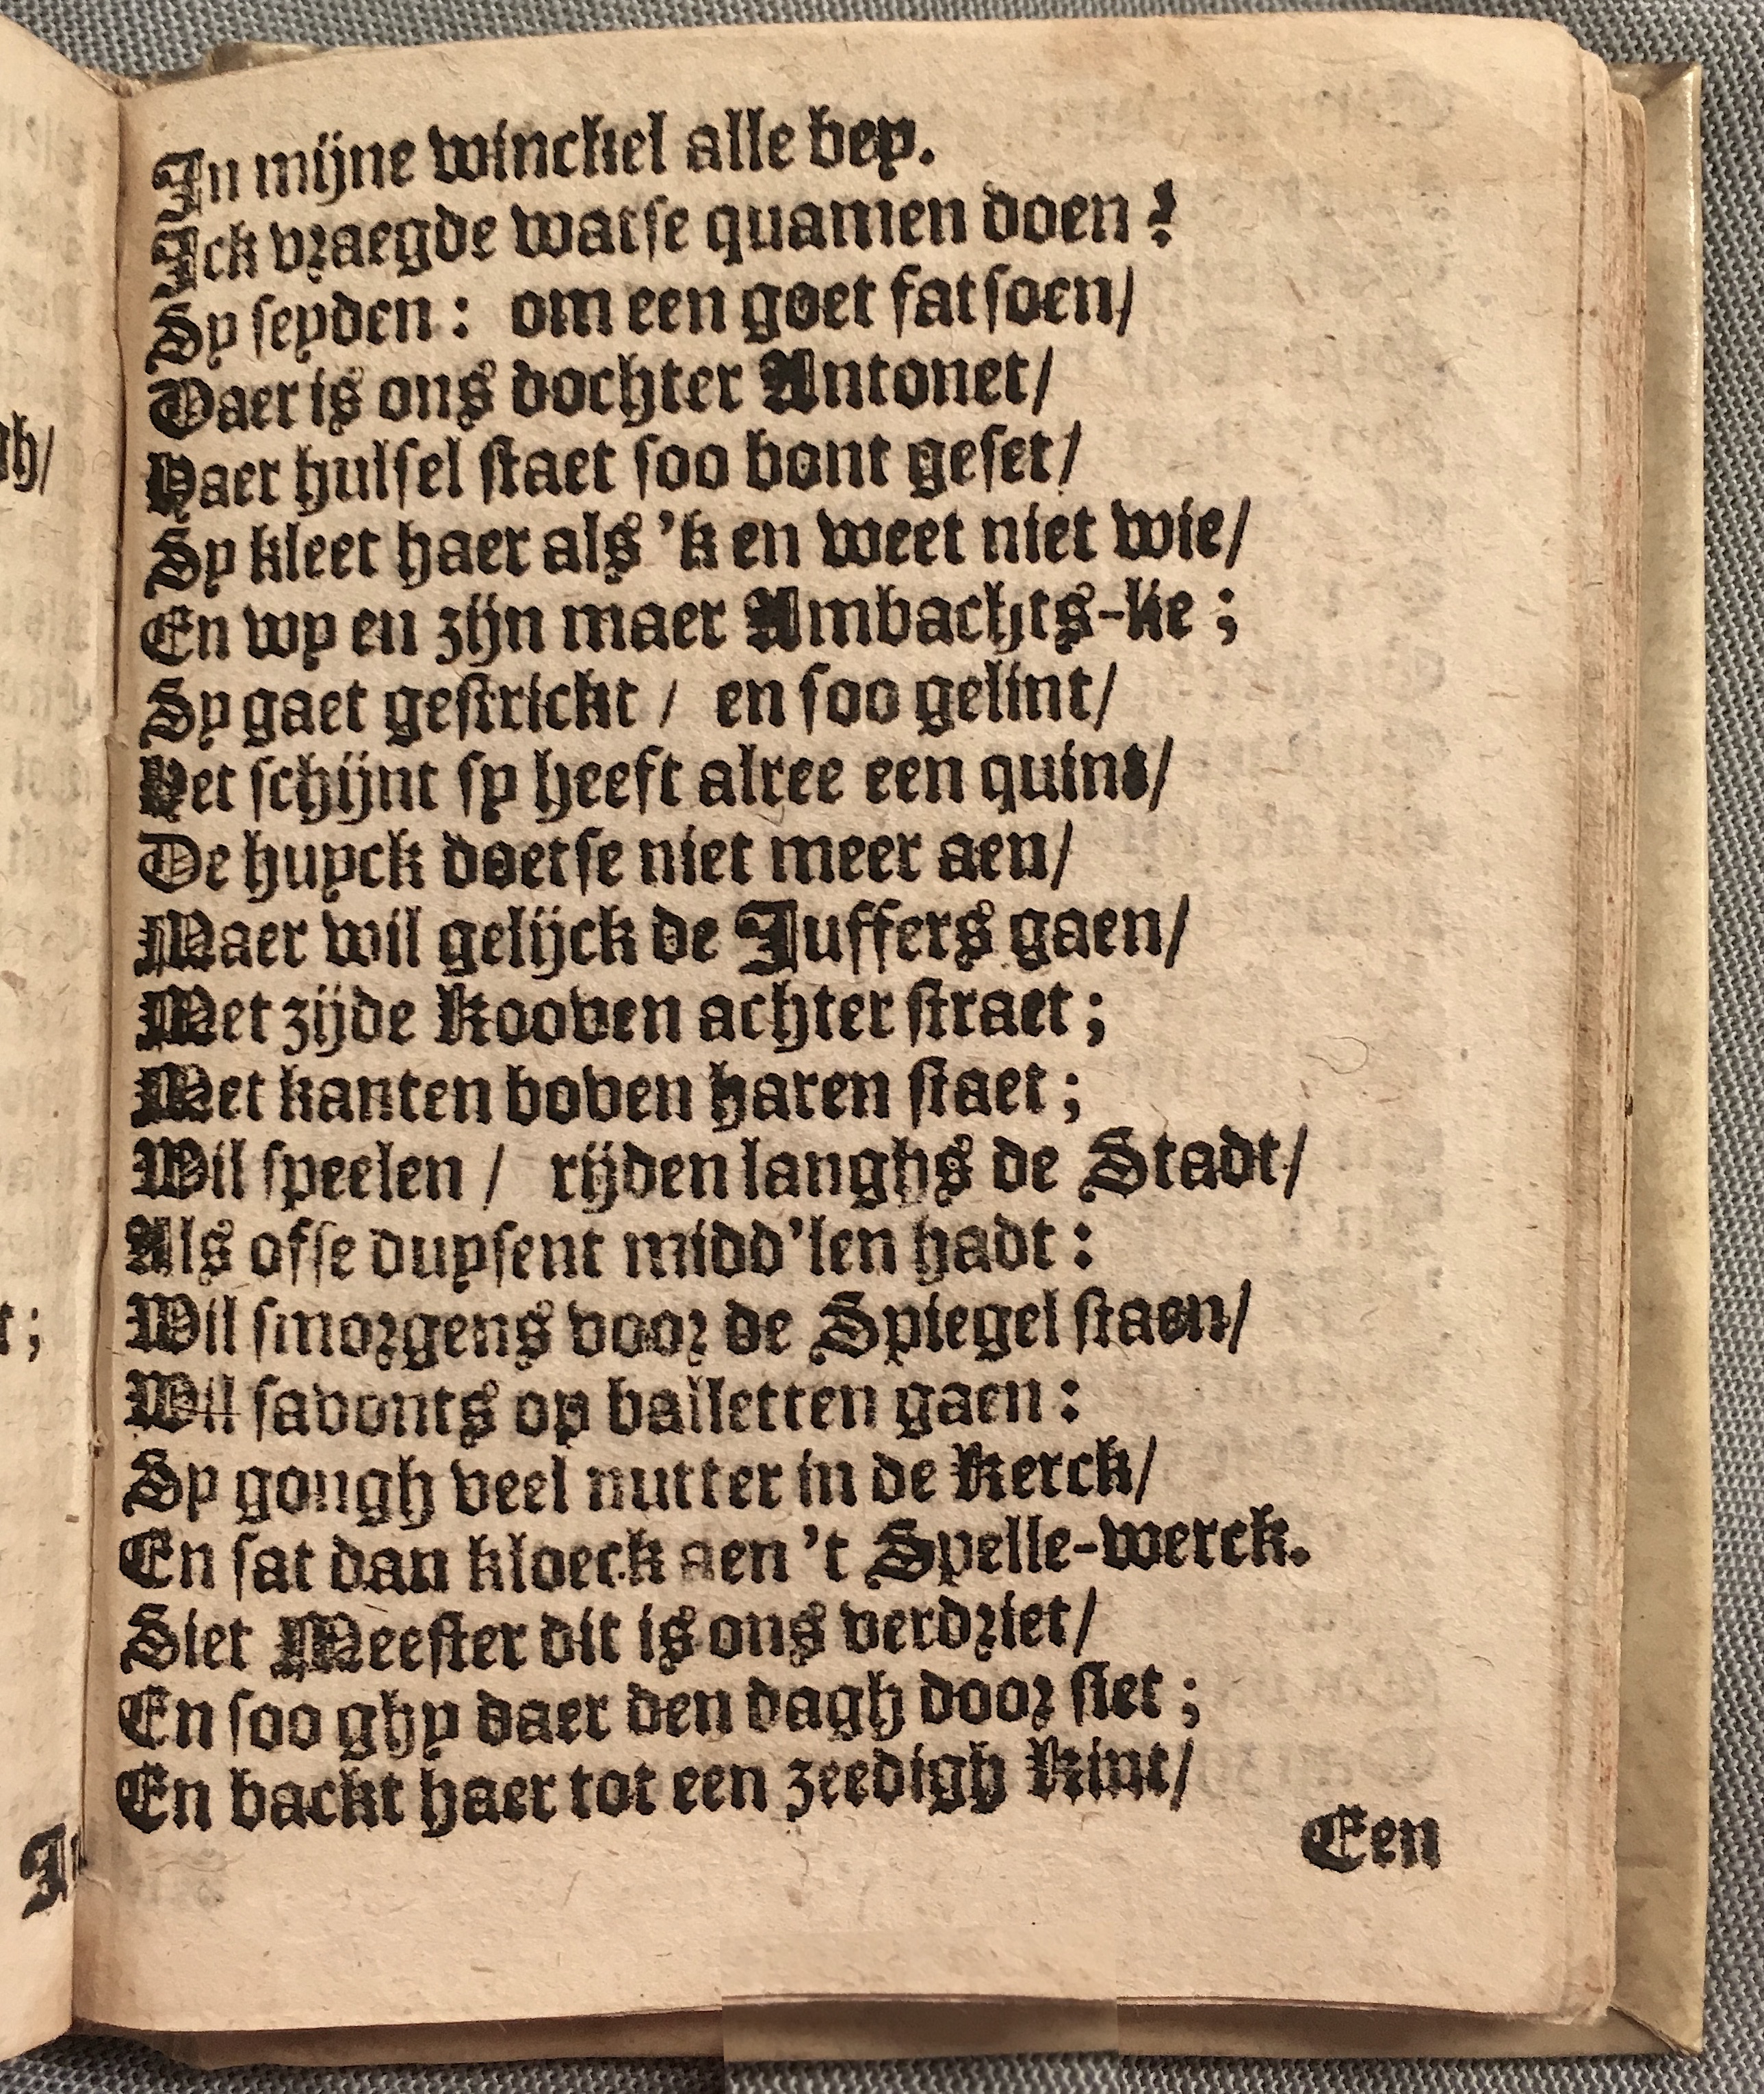 In mijne winckel alle bey.
Ick vraegde watse quamen doen?
Sy seyden: om een goet fatsoen/
Daer is ons dochter Antonet/
Haer hulsel staet soo bont geset/
Sy kleet haer als 'k en weet niet wie/
En wy en zijn maer Ambachts-lie;
Sy gaet gestrickt / en soo gelint/
Het schijnt sy heeft alree een quint/
De huyck doetse niet meer aen/
Maer wil gelijck de Juffers gaen/
Met zijde Kooven achter straet;
Met kanten boven haren staet;
Wil speelen / rijden langhs de Stadt/
Als ofse duysent midd'len hadt:
Wil smorgens voor de Spiegel staen/
Wil savonts op balletten gaen:
Sy gongh veel nutter in de Kerck/
En sat dan kloeck aen 't Spelle-werck.
Siet Meester dit is ons verdriet/
En soo ghy daer den dagh door siet;
En backt haer tot een zeedigh Kint/
Een